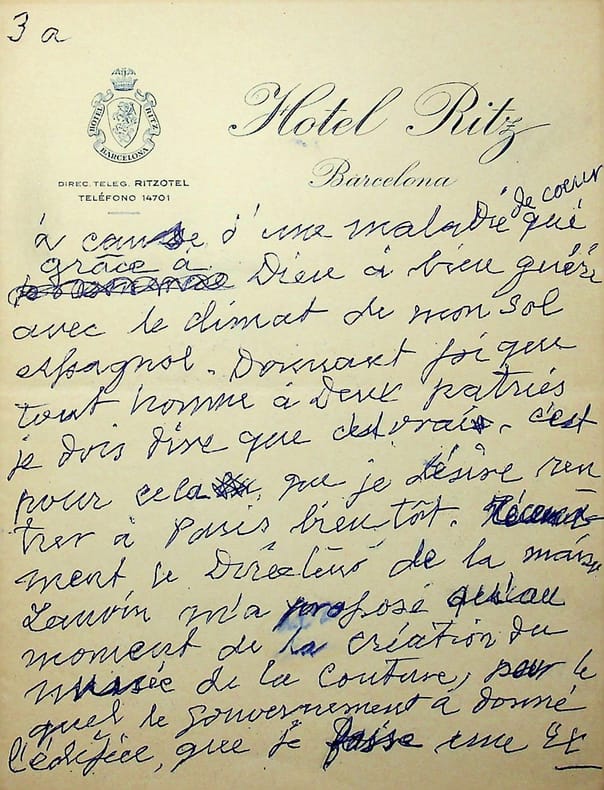 3 a
HOTEL RITZ
BARCELONA
Hotel Ritz
Barcelona
DIREC. TELEG. RITZOTEL
TELÉFONO 14701
de coeur
à cause d'une maladie que
grâce à
Dieu à bien guéri
avec le climat de mon sol
espagnol. Donnant foi que
tout homme à deux patries
je dois dire que c'est vrai. c'est
pour cela que je désire ren
trer à Paris bientôt. Récem-
ment le Directeur de la maison
Lanvin m'a proposé qu'au
moment de la création du
musée de la couture, pour le
quel le gouvernement à donné
l'édifice, que je fasse une Ex